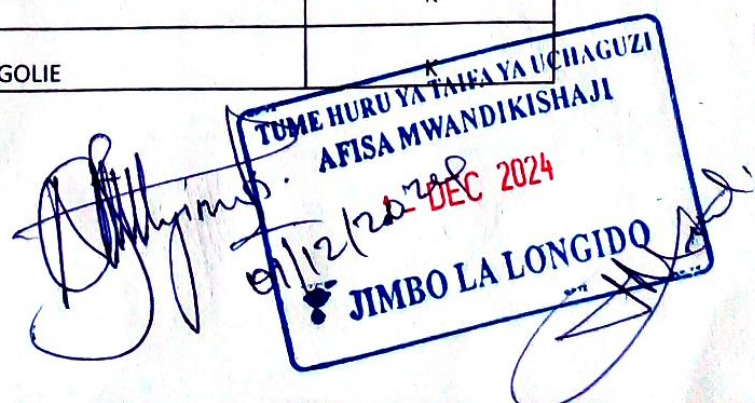 GOLIE
K
TUME HURU YA TAIFA YA UCHAGUZI
AFISA MWANDIKISHAJI
DEC 2024
JIMBO LA LONGIDO